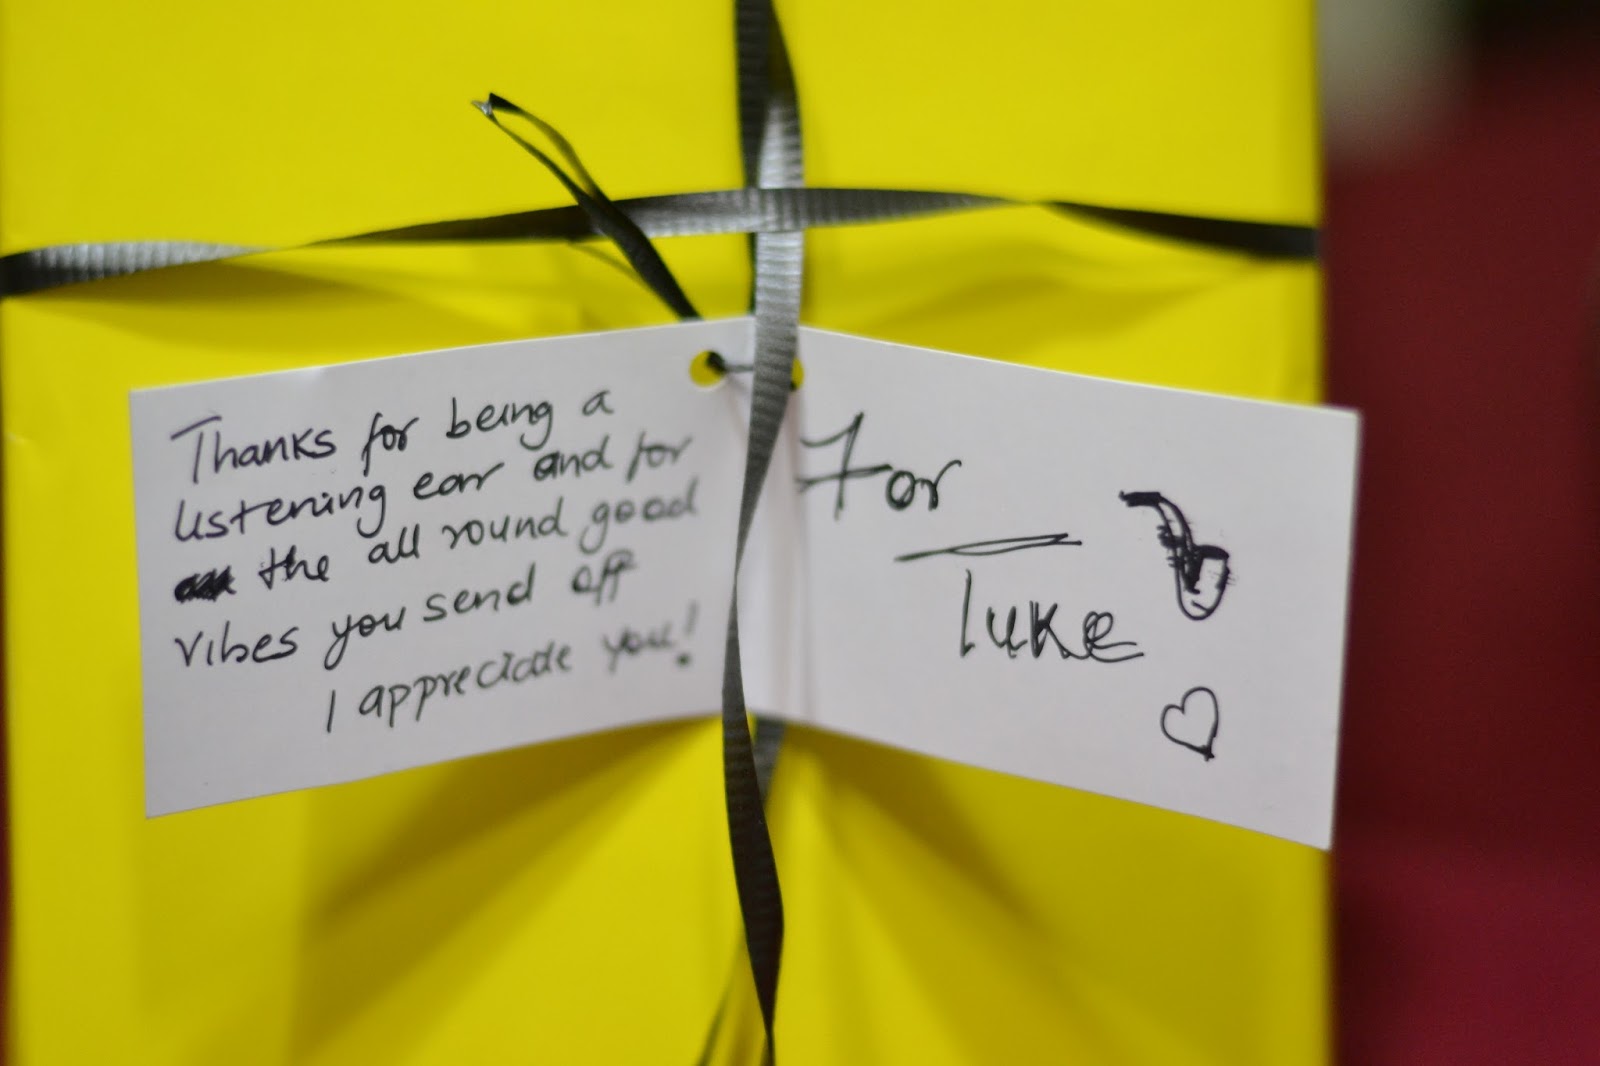 Thanks for being a
listening ear and for
the all round good
vibes you send off
I appreciate you!
For
luke